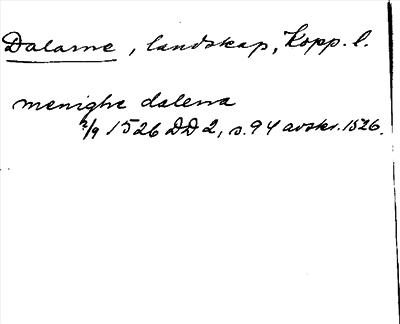 Dalarne, landskap, Kopp. l.
menighe dalerra
2/9 1526 DD 2, s. 94 avskr. 1526.